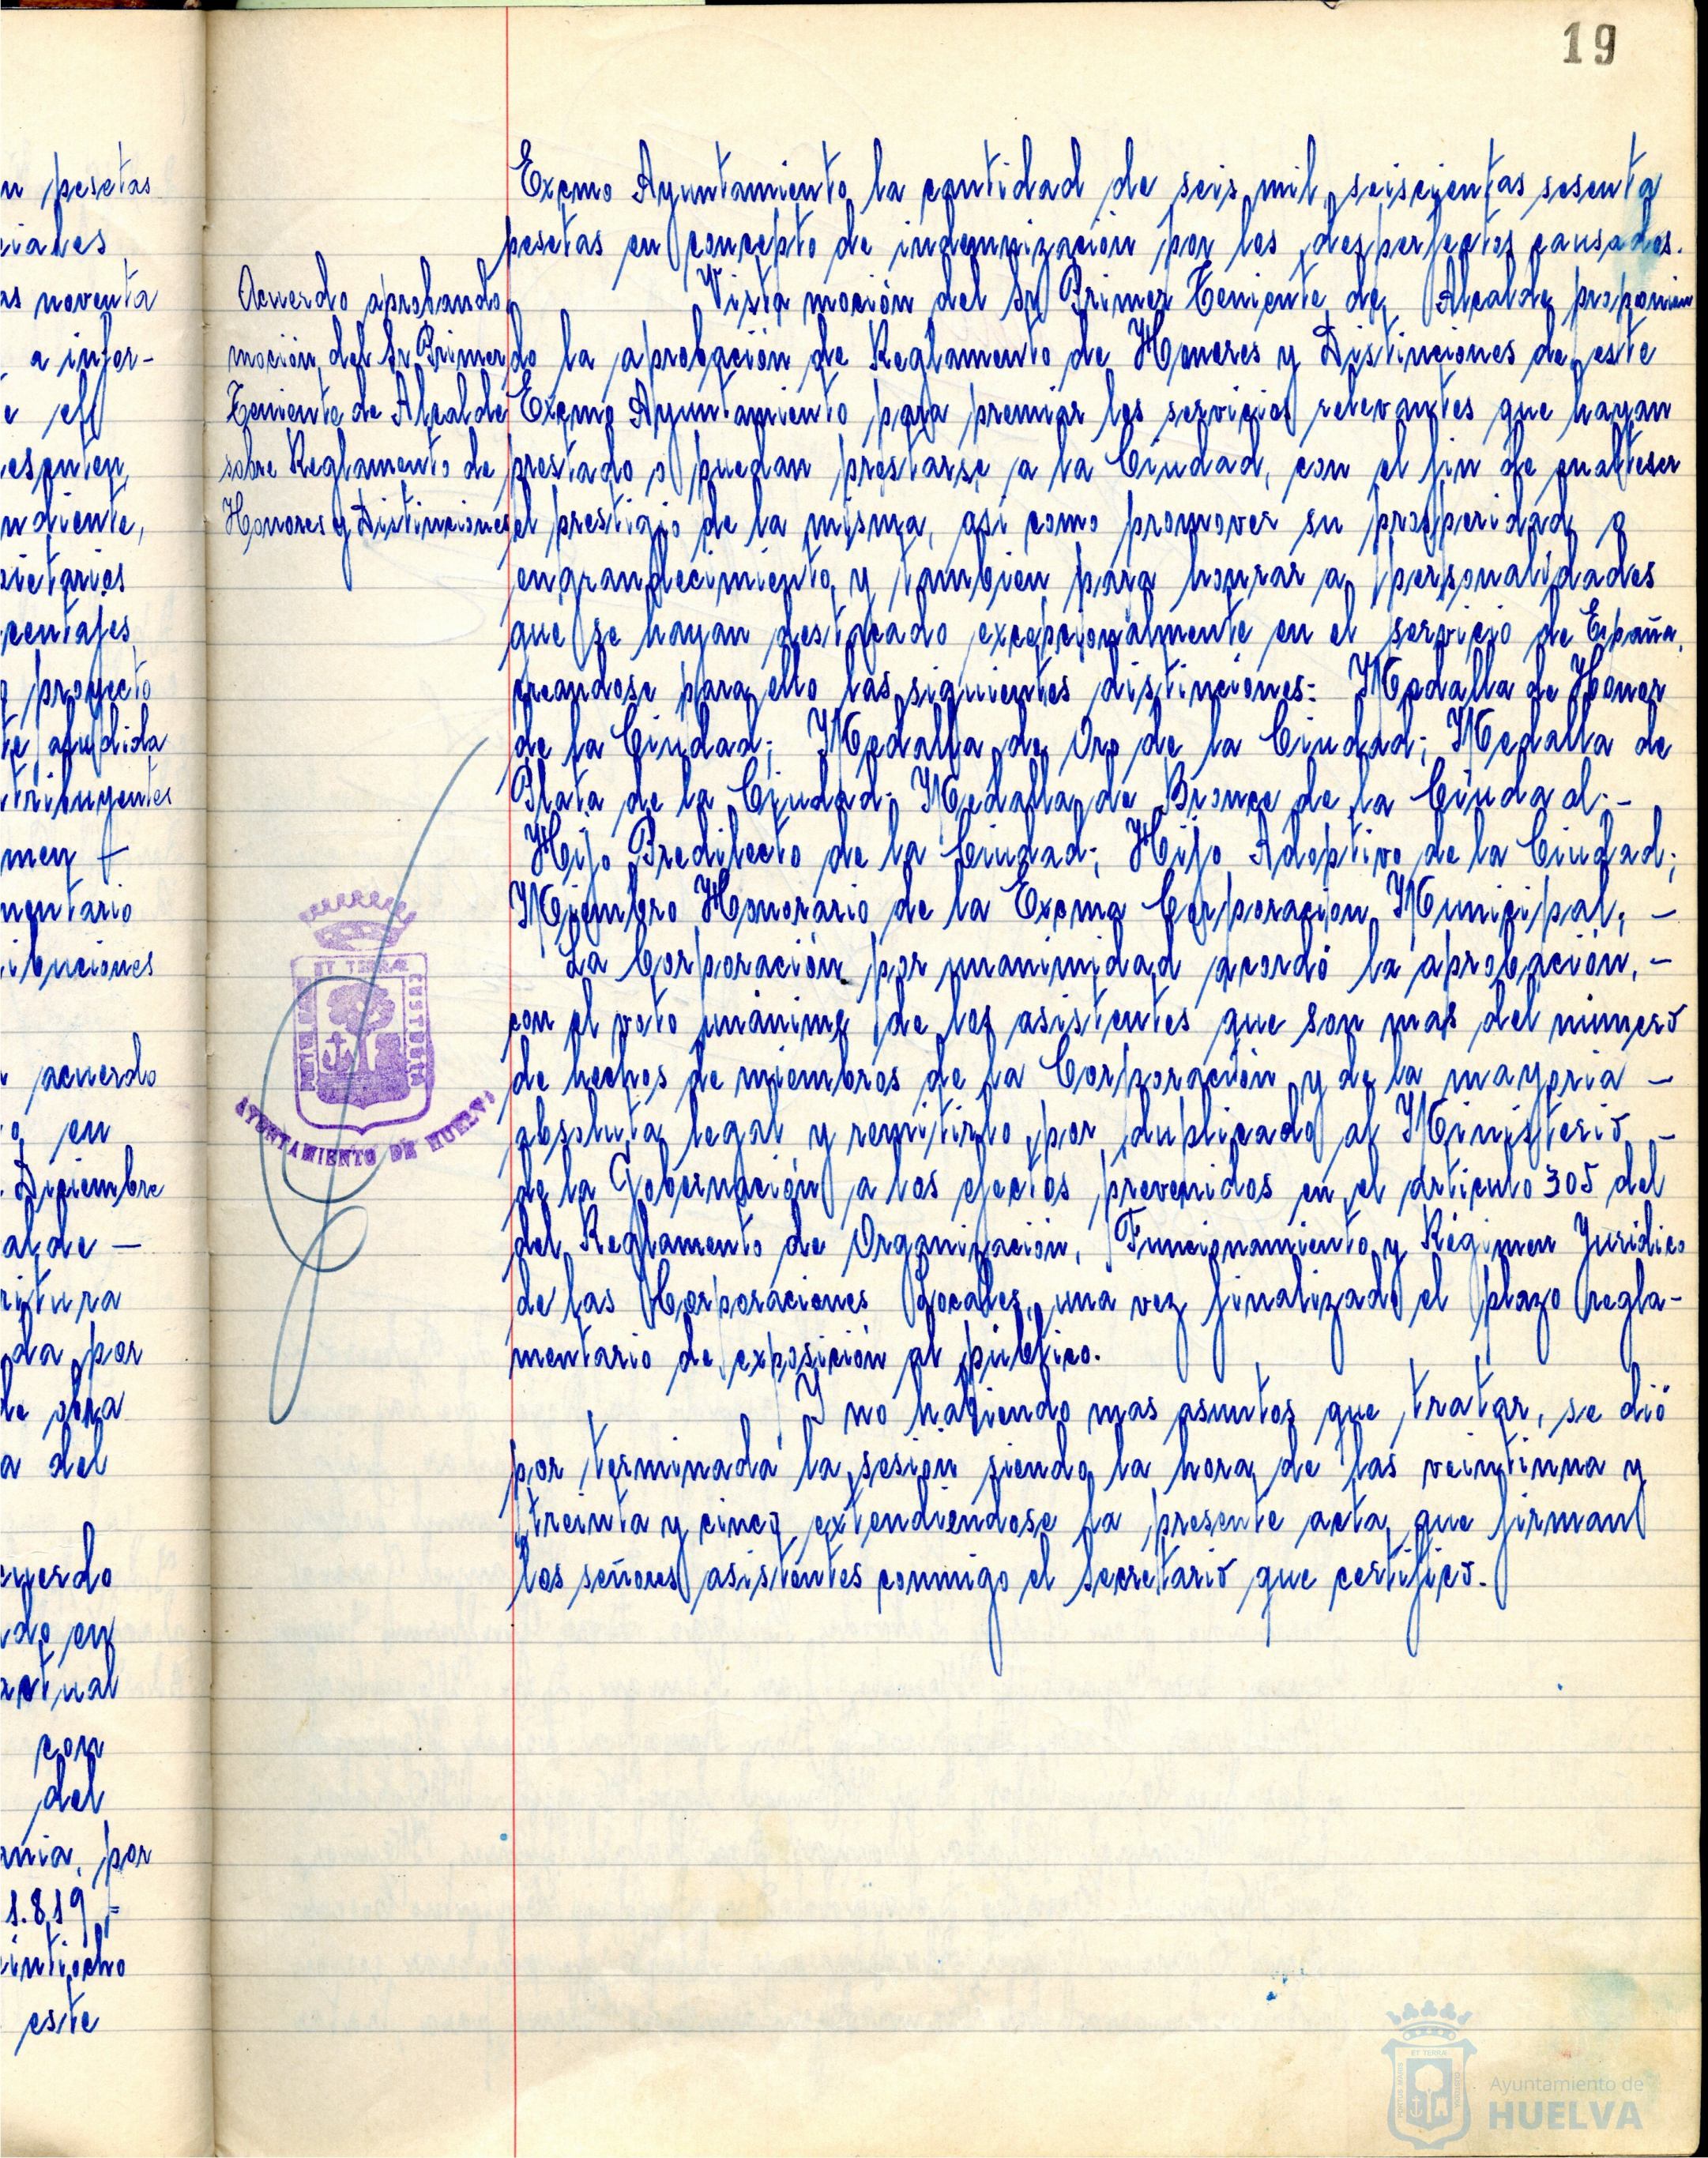 19
n pesetas
ciales
as noventa
a infor-
e el
esenten,
ndiente,
pietarios
centajes
proyecto
te aludida
tribuyentes
men
mentario
ibuciones
acuerdo
en
Diciembre
alde —
ritura
da por
de obra
a del
cuerdo
do en
actual
con
del
por
1.819 =
eintiocho
este
Acuerdo aprobando
moción del Sr Primer
Teniente de Alcalde
sobre Reglamento de
Honores y Distinciones
Excmo Ayuntamiento la cantidad de seis mil seiscientas sesenta
pesetas en concepto de indemnización por los desperfectos causados.
Vista moción del Sr Primer Teniente de Alcalde proponien
do la aprobación de Reglamento de Honores y Distinciones de este
Excmo Ayuntamiento para premiar los servicios relevantes que hayan
prestado o puedan prestarse a la Ciudad, con el fin de enalteser
el prestigio de la misma, asi como promover su prosperidad o
engrandecimiento y tambien para honrar a personalidades
que se hayan destacado excepcionalmente en el servicio de España,
creandose para ello las siguientes distinciones: Medalla de Honor
de la Ciudad; Medalla de Oro de la Ciudad; Medalla de
Plata de la Ciudad; Medalla de Bronce de la Ciudad; -
Hijo Predilecto de la Ciudad; Hijo Adoptivo de la Ciudad;
Miembro Honorario de la Excma Corporación Municipal; -
La Corporación por unanimidad acordó la aprobación, -
con el voto unánime de los asistentes que son mas del número
de hechos de miembros de la Corporación y de la mayoria -
absoluta legal y remitirlo por duplicado al Ministerio -
de la Gobernación a los efectos prevenidos en el articulo 305 del
del Reglamento de Organización, Funcionamiento y Régimen Juridico
de las Corporaciones Locales, una vez finalizado el plazo regla-
mentario de exposición al público.
Y no habiendo mas asuntos que tratar, se dió
por terminada la sesión siendo la hora de las veintiuna y
treinta y cinco extendiendose la presente acta que firman
los señores asistentes conmigo el Secretario que certifico.
ET TERRAE
CUSTODIA
AYUNTAMIENTO DE HUELVA
Ayuntamiento de
HUELVA